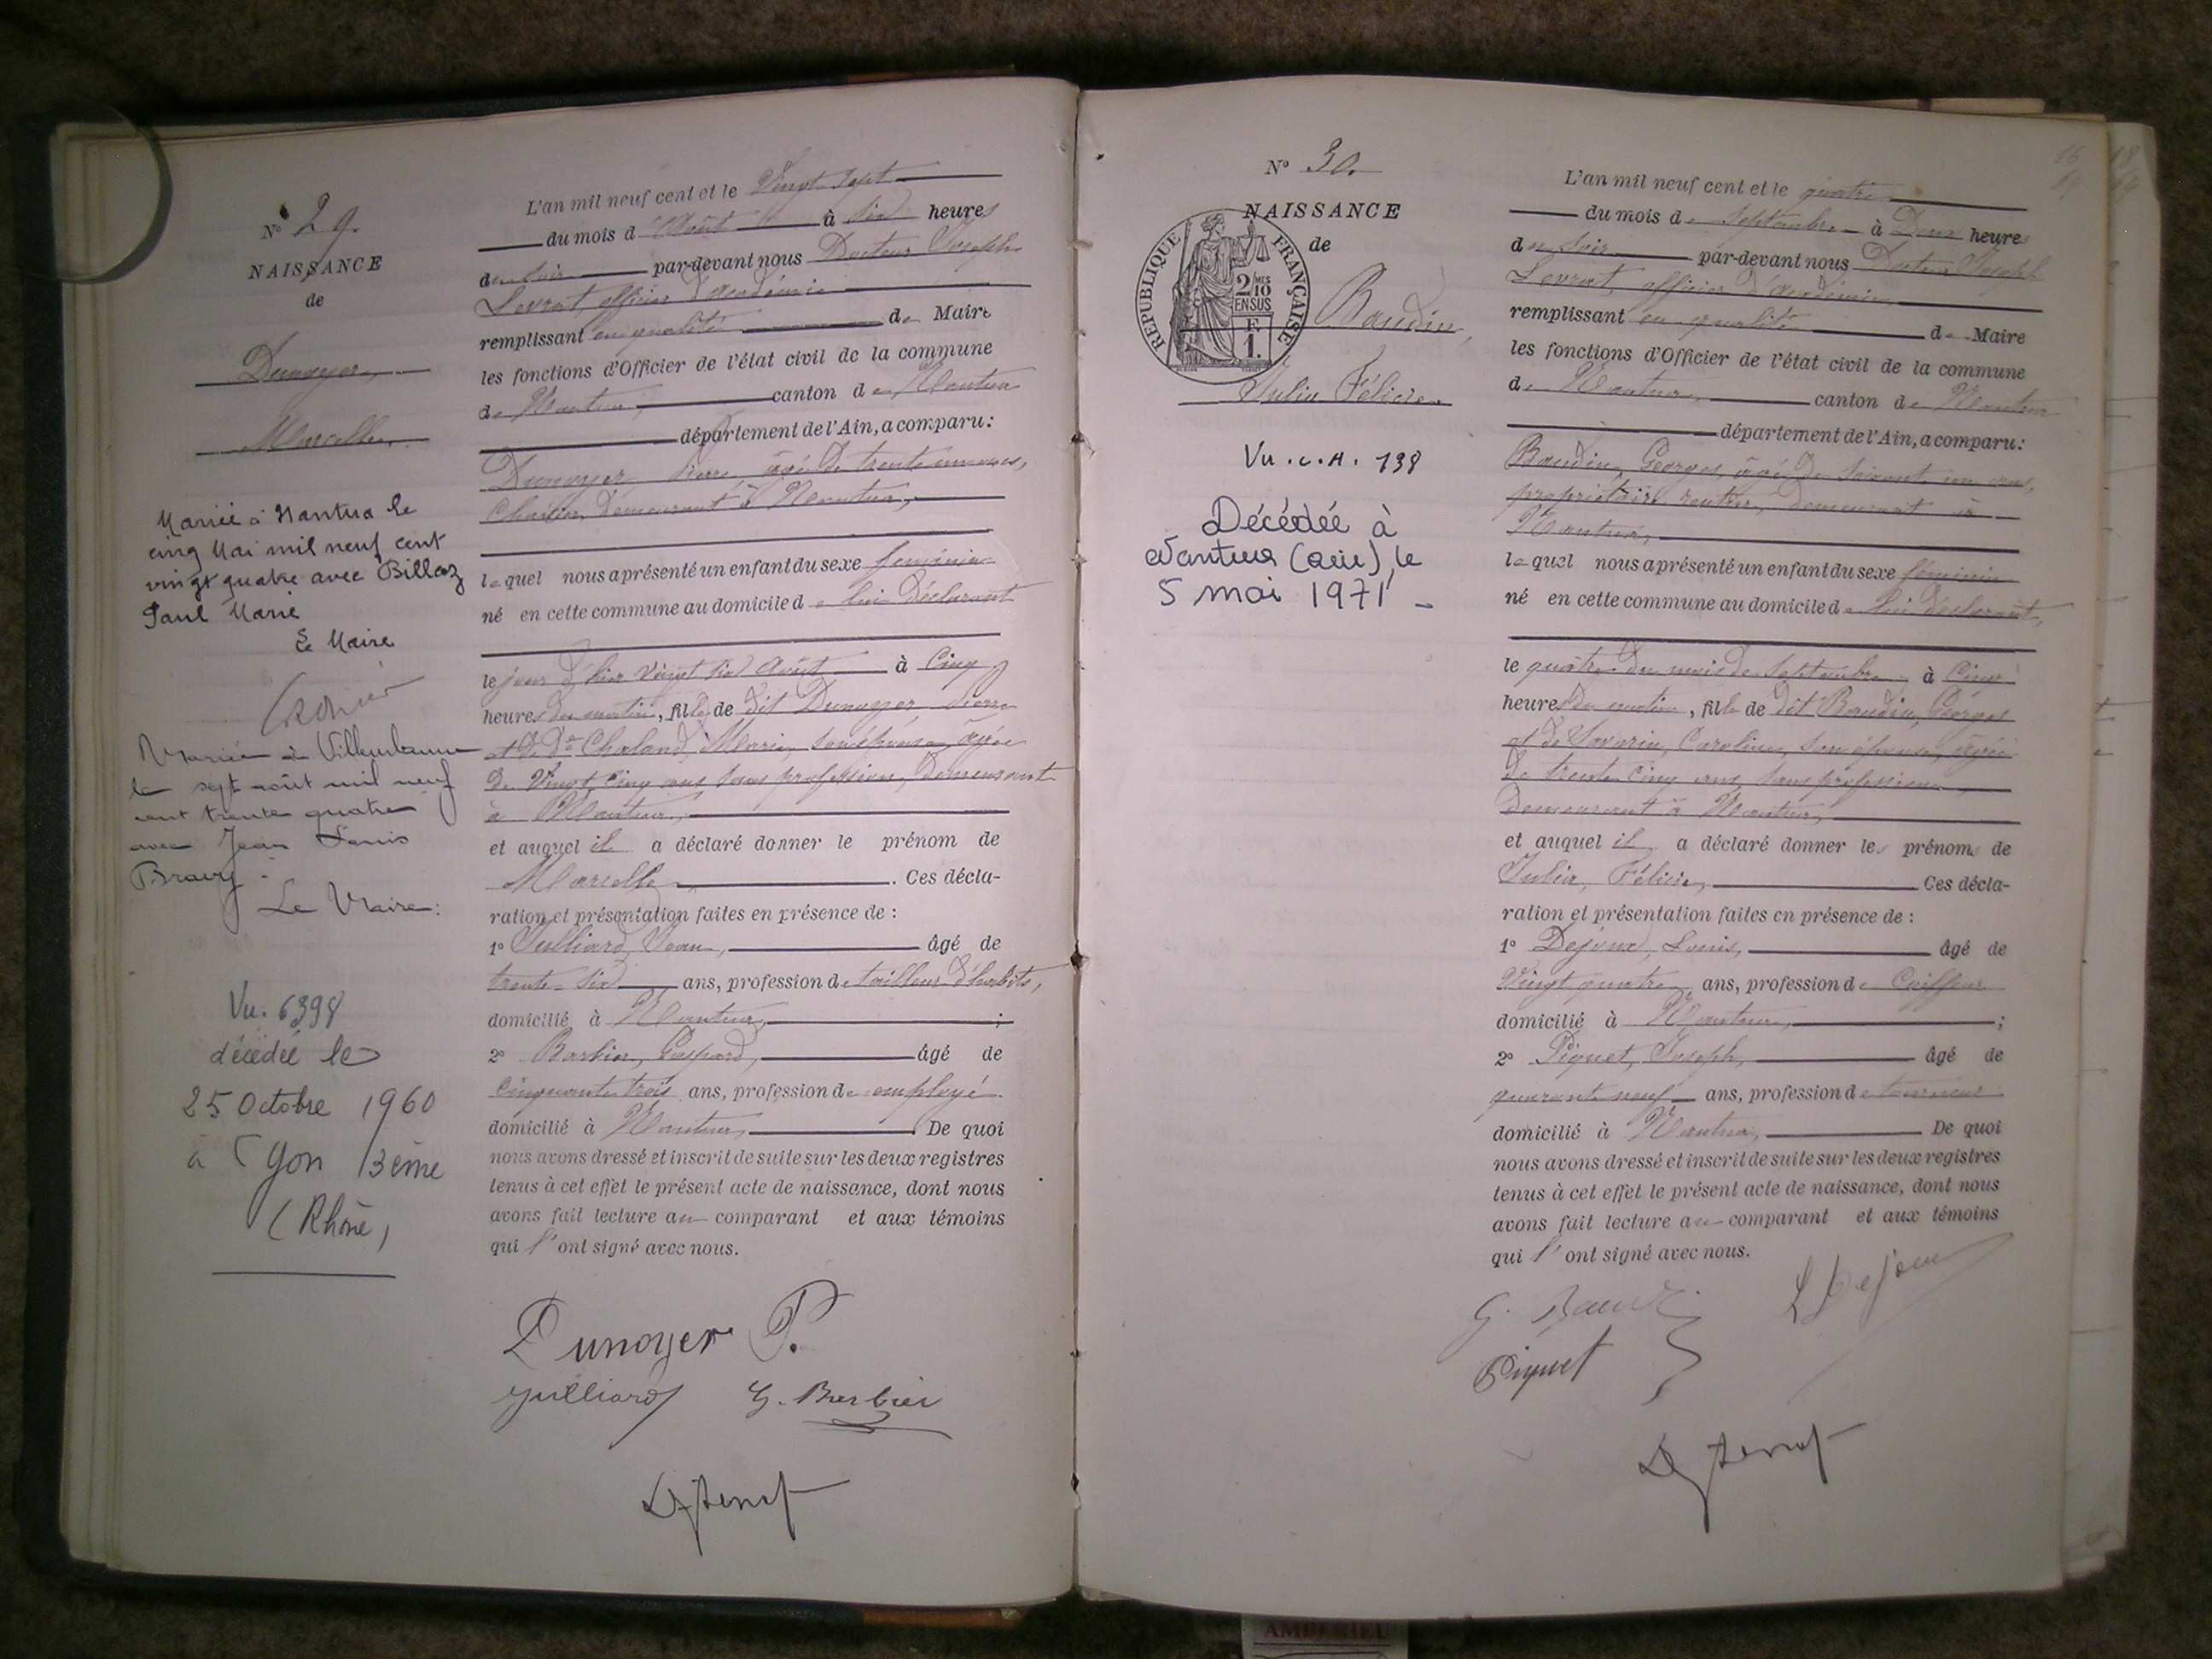 N° 29.
NAISSANCE
de
Dunoyer,
Marcelle,
Mariée à Nantua le
cinq Mai mil neuf cent
vingt quatre avec Billaz
Paul Marie
Le Maire
Mariée à Villeurbanne
le sept août mil neuf
cent trente quatre
avec Jean Louis
Le Maire:
Vu. 6398
décédée le
25 Octobre 1960
à Lyon 3ème
(Rhône)
L'an mil neuf cent et le Vingt sept
du mois d'Août à six heures
du soir par-devant nous Docteur Joseph
Levrat, officier d'académie
remplissant en qualité de Maire
les fonctions d'Officier de l'état civil de la commune
de Nantua, canton de Nantua
département de l'Ain, a comparu:
Dunoyer Pierre, âgé de trente ans,
demeurant à Nantua,
lequel nous a présenté un enfant du sexe féminin
né en cette commune au domicile de lui déclarant
le jour d'hier vingt six Août à Cinq
heures du matin, fille de dit Dunoyer Pierre
et de De Chaland, Marie, son épouse, âgée
de Vingt cinq ans sans profession, demeurant
à Nantua,
et auquel il a déclaré donner le prénom de
Marcelle. Ces décla-
ration et présentation faites en présence de :
1° Julliard, Jean, âgé de
trente-six ans, profession de tailleur d'habits,
domicilié à Nantua, ;
2° Barbier, Gaspard, âgé de
cinquante trois ans, profession de employé.
domicilié à Nantua, De quoi
nous avons dressé et inscrit de suite sur les deux registres
tenus à cet effet le présent acte de naissance, dont nous
avons fait lecture au comparant et aux témoins
qui l'ont signé avec nous.
Dunoyer P.
Julliard G. Barbier
N° 30.
NAISSANCE
de
RÉPUBLIQUE FRANÇAISE
2/10 MES
EN SUS
F.
1.
Baudin,
Julia Félicie
Vu. c.A. 138
Décédée à
Nantua (Ain), le
5 mai 1971 -
L'an mil neuf cent et le quatre
du mois de Septembre à Deux heures
du soir par-devant nous Docteur Joseph
Levrat, officier d'académie
remplissant en qualité de Maire
les fonctions d'Officier de l'état civil de la commune
de Nantua, canton de Nantua
département de l'Ain, a comparu:
Baudin, Georges, âgé de soixante un ans,
propriétaire rentier, demeurant à
Nantua,
lequel nous a présenté un enfant du sexe féminin
né en cette commune au domicile de lui déclarant,
le quatre du mois de Septembre à Cinq
heures du matin, fille de dit Baudin, Georges
et de Savarin, Caroline, son épouse, âgée
de trente cinq ans, sans profession,
demeurant à Nantua,
et auquel il a déclaré donner les prénoms de
Julia, Félicie, Ces décla-
ration et présentation faites en présence de :
1° Dejoux, Louis, âgé de
Vingt quatre ans, profession de Coiffeur
domicilié à Nantua, ;
2° Piquet, Joseph, âgé de
quarante neuf ans, profession de tourneur
domicilié à Nantua, De quoi
nous avons dressé et inscrit de suite sur les deux registres
tenus à cet effet le présent acte de naissance, dont nous
avons fait lecture au comparant et aux témoins
qui l'ont signé avec nous.
G. Baudin L Dejoux
Piquet
AMBERIEU